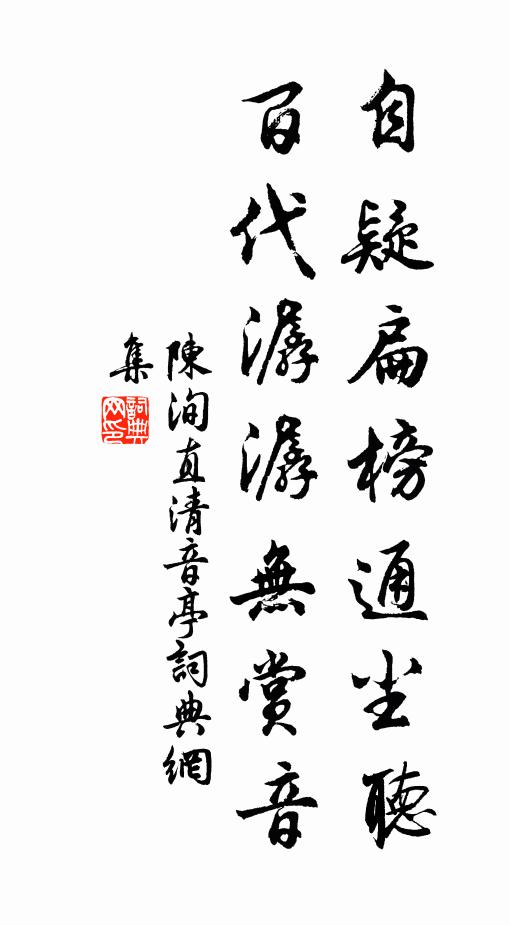 自疑扁榜通尘聽
百代潺潺無賞音
陳洵直清音亭詞典網
集
詞典
网印